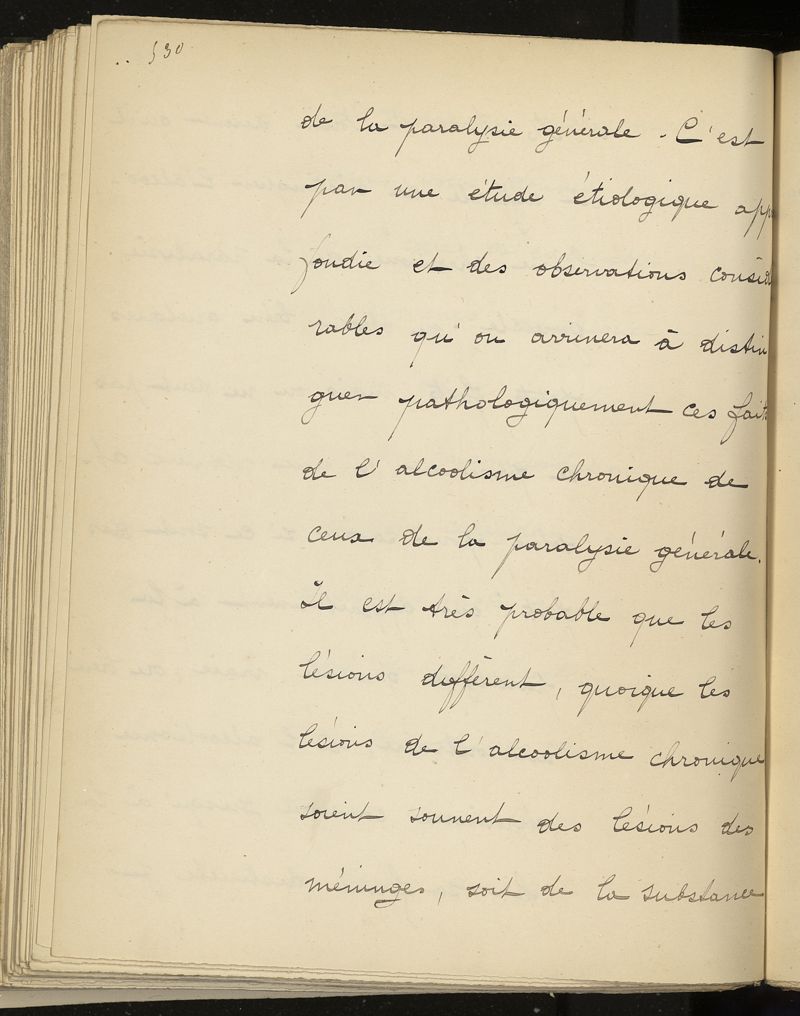 530
de la paralysie générale. C'est
par une étude étiologique appro
fondie et des observations considé
rables qu'on arrivera à distin
guer pathologiquement ces faits
de l'alcoolisme chronique de
ceux de la paralysie générale.
Il est très probable que les
lésions diffèrent, quoique les
lésions de l'alcoolisme chronique
soient souvent des lésions des
méninges, soit de la substance